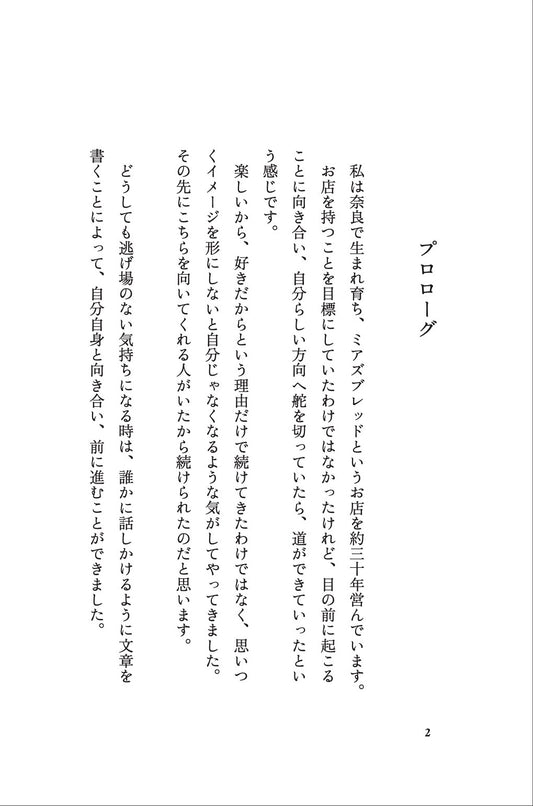 プロローグ
私は奈良で生まれ育ち、ミアズブレッドというお店を約三十年営んでいます。
お店を持つことを目標にしていたわけではなかったけれど、目の前に起こる
ことに向き合い、自分らしい方向へ舵を切っていたら、道ができていったとい
う感じです。
楽しいから、好きだからという理由だけで続けてきたわけではなく、思いつ
くイメージを形にしないと自分じゃなくなるような気がしてやってきました。
その先にこちらを向いてくれる人がいたから続けられたのだと思います。
どうしても逃げ場のない気持ちになる時は、誰かに話しかけるように文章を
書くことによって、自分自身と向き合い、前に進むことができました。
2